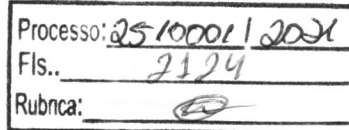 Processo: 2510001 / 2021
Fls.. 2124
Rubrica: